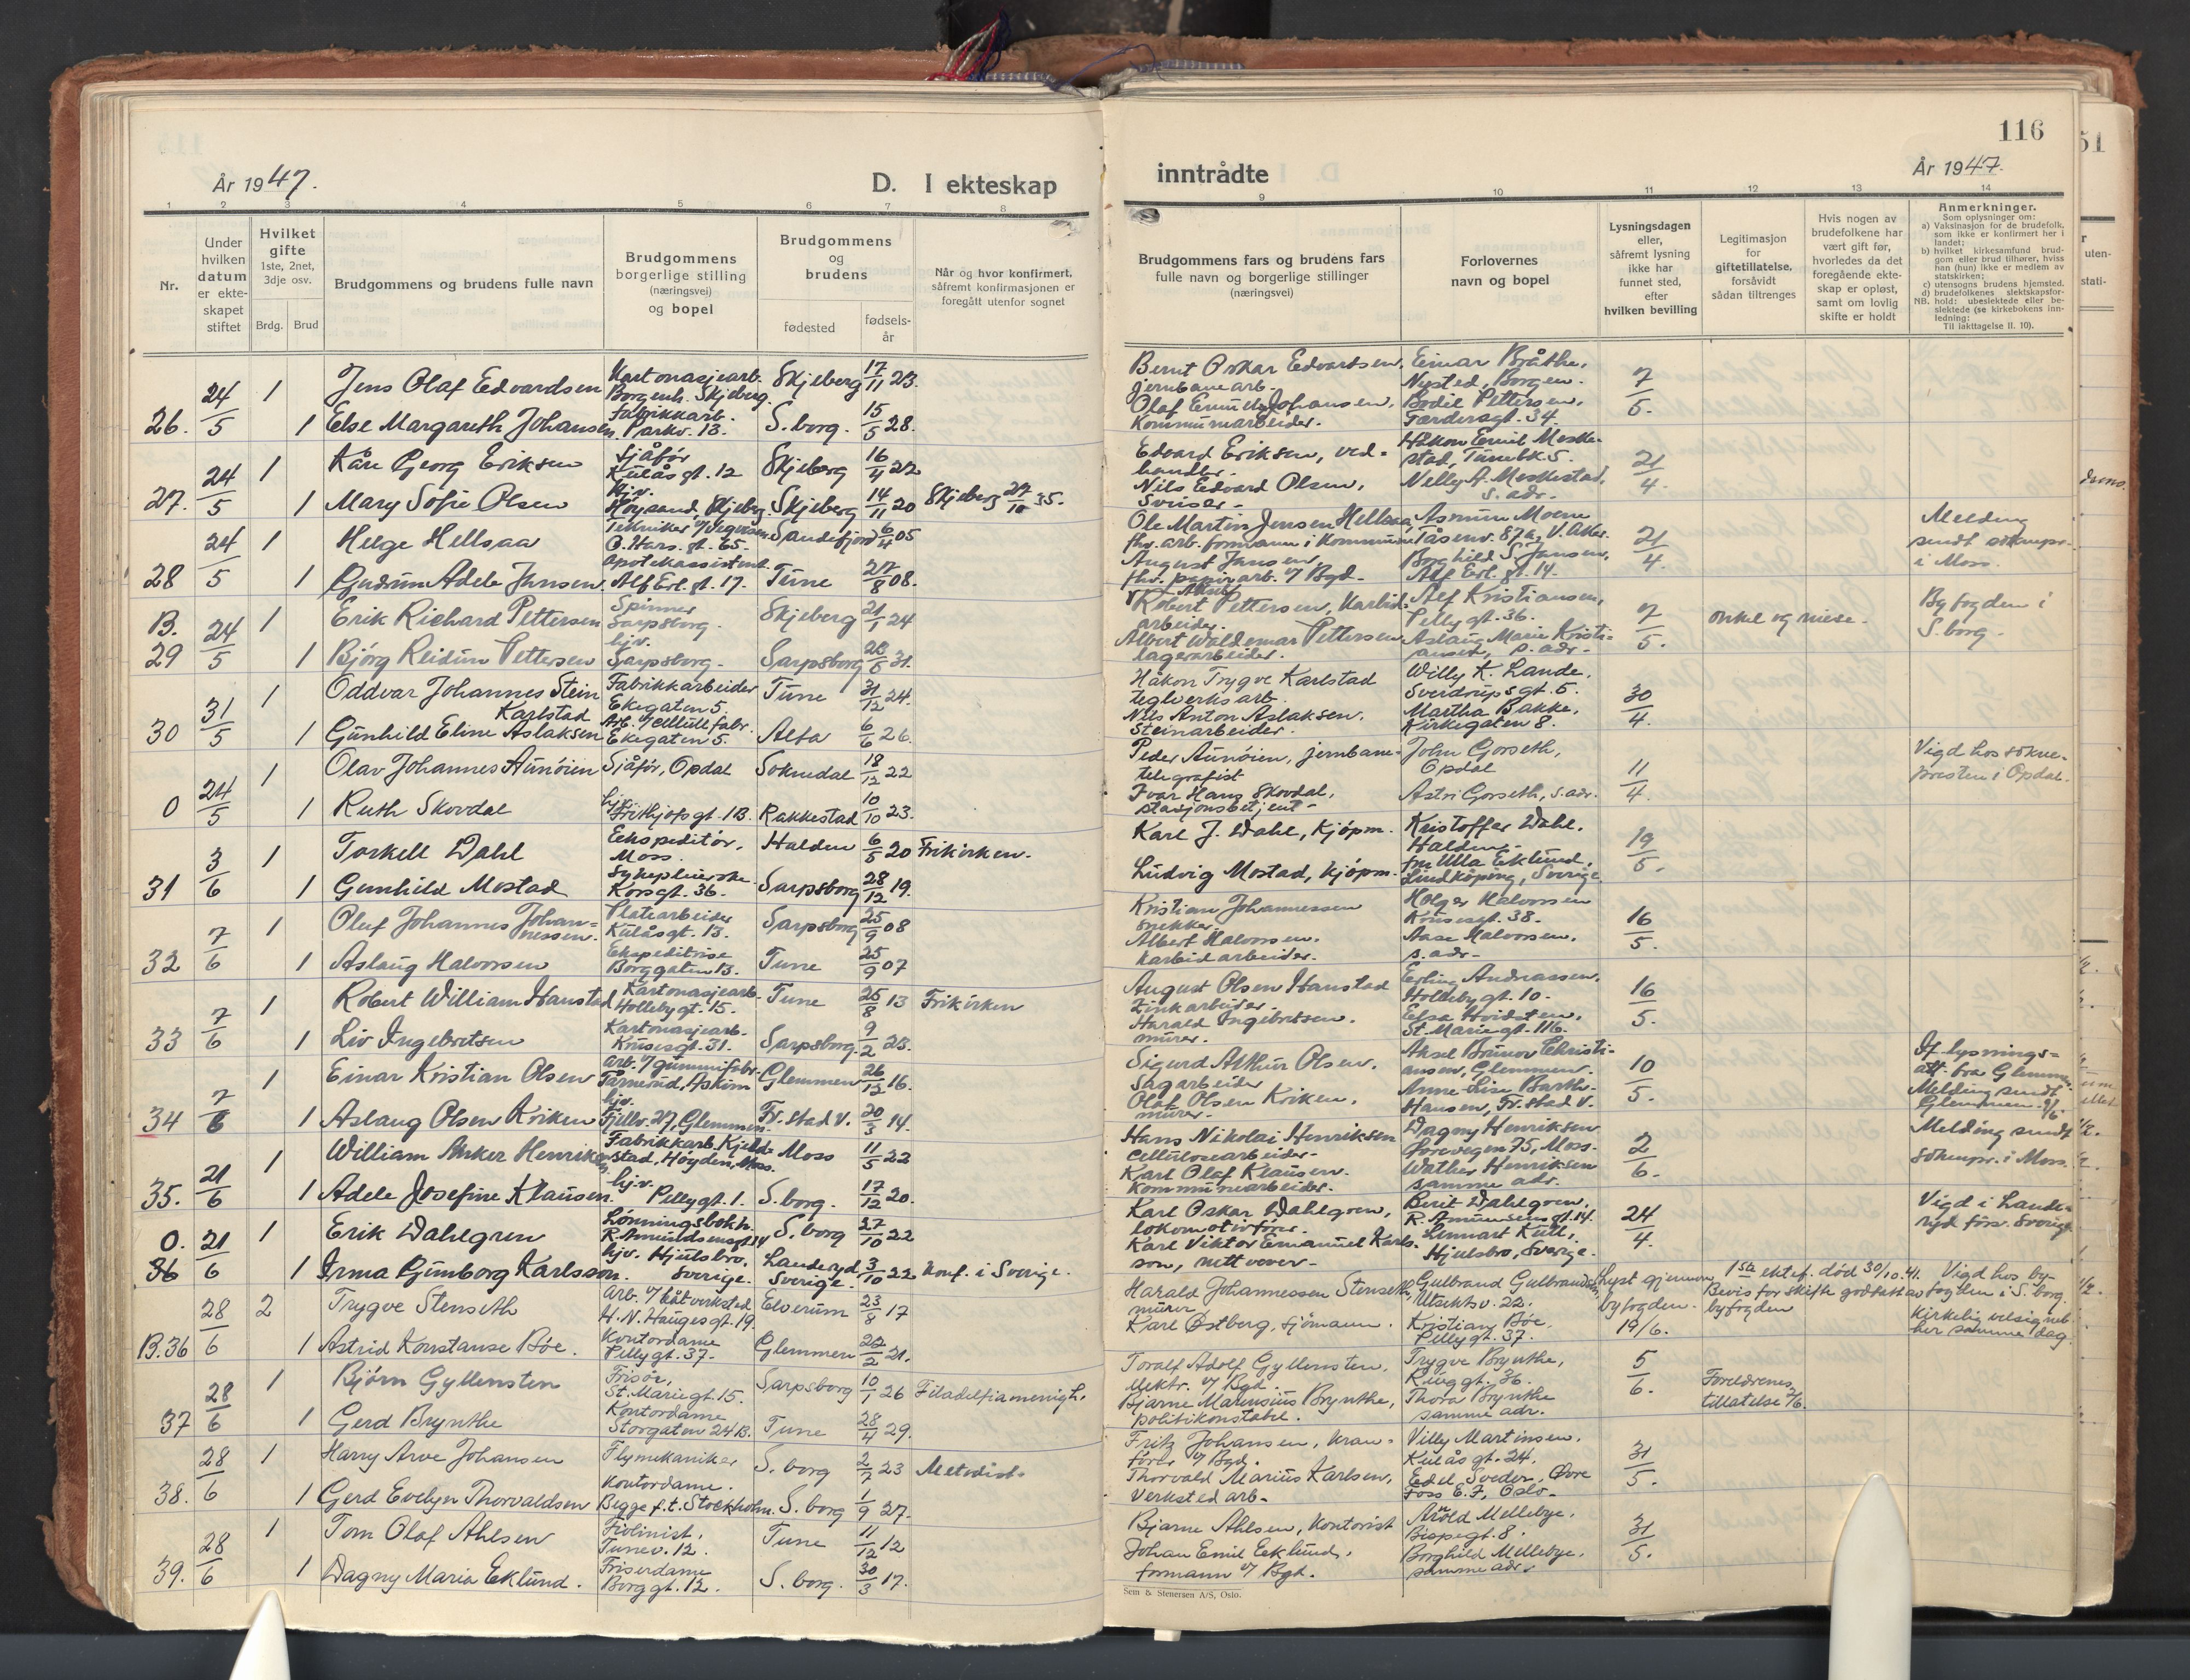 116
År 1947.
D. I ekteskap
inntrådte
År 1947.
1 2 3 4 5 6 7 8 9 10 11 12 13 14
Nr.
Under hvilken datum er ekteskapet stiftet
Hvilket gifte 1ste, 2net, 3dje osv.
Brdg. Brud
Brudgommens og brudens fulle navn
Brudgommens borgerlige stilling (næringsvei) og bopel
Brudgommens og brudens
fødested
fødsels-år
Når og hvor konfirmert, såfremt konfirmasjonen er foregått utenfor sognet
Brudgommens fars og brudens fars fulle navn og borgerlige stillinger (næringsvei)
Forlovernes navn og bopel
Lysningsdagen eller, såfremt lysning ikke har funnet sted, efter hvilken bevilling
Legitimasjon for giftetillatelse, forsåvidt sådan tiltrenges
Hvis nogen av brudefolkene har vært gift før, hvorledes da det foregående ekteskap er opløst, samt om lovlig skifte er holdt
Anmerkninger.
Som oplysninger om:
a) Vaksinasjon for de brudefolk, som ikke er konfirmert her i landet;
b) hvilket kirkesamfund brudgom eller brud tilhører, hviss han (hun) ikke er medlem av statskirken;
c) utensogns brudens hjemsted.
d) brudefolkenes slektskapsforhold: ubeslektede eller beslektede (se kirkebokens innledning:
NB.
Til iakttagelse II. 10).
24/5 1 Jens Olaf Edvardsen Kartonasjearb. Borgenh. Skjeberg. Skjeberg 17/11 23. Bernt Oskar Edvardsen, jernbanearb. Einar Bråthe, Nysted, Borgen. 7/5.
26. 1 Else Margareth Johansen Fabrikkarb. Parkv. 13. S. borg. 15/5 28. Olaf Emil Johansen, Kommunearbeider. Bodil Pettersen, Færdersgt. 34.
24/5 1 Kåre Georg Eriksen Sjåfør Kulåsgt. 12 Skjeberg 16/4 22 Edvard Eriksen, vedhandler. Håkon Emil Meskestad, Tunebk. 5. 21/4.
27. 1 Mary Sofie Olsen Hjv. Høysand, Skjeberg. Skjeberg 14/11 20 Skjeberg 27/10 35. Nils Edvard Olsen, Sveiser. Nelly A. Meskestad, s. adr.
24/5 1 Helge Hellsaa Tekniker O. Hars. gt. 65. Sandefjord 6/4 05 Ole Martin Jensen Hellsaa, fhv. arb. formann i kommunen Asmun Moene Tåsenv. 87a, V. Aker. 21/4. Melding sendt soknepr. i Moss.
28 1 Gudrun Adele Jansen Apotekassistent Alf Erl. gt. 17. Tune 27/8 08. August Jansen, fhv. papirarb. v/ Bgd. Borghild S. Jansen, Alf Erl. gt. 14.
B. 24/5 1 Erik Richard Pettersen Spinner Sarpsborg. Skjeberg 21/1 24 Robert Pettersen, Karbidarbeider. Alf Kristiansen, Pellygt. 36. 7/5. onkel og niese. Byfogden i S. borg.
29 1 Bjørg Reidun Pettersen hjv. Sarpsborg. Sarpsborg 31. Albert Waldemar Pettersen lagerarbeider. Aslaug Marie Kristiansen, s. adr.
31/5 1 Oddvar Johannes Stein Karlstad Fabrikkarbeider Ekegaten 5. Tune 31/12 24. Håkon Trygve Karlstad teglverksarb. Willy K. Lande, Sverdrupsgt. 5. 30/4.
30 1 Gunhild Eline Aslaksen Arb. v/ cellull fabr. Ekegaten 5. Alta 6/6 26. Nils Anton Aslaksen, Steinarbeider. Martha Bakke, Kirkegaten 8.
24/5 1 Olav Johannes Aunøien Sjåfør, Opdal Soknedal 18/12 22 Peder Aunøien, jernbanetelegrafist John Gorseth, Opdal 11/4. Vigd hos soknepresten i Opdal.
0 1 Ruth Skovdal hjv. Frithjofsgt. 1B. Rakkestad 10/10 23. Ivar Hans Skovdal, stasjonsbetjent Astri Gorseth, s. adr.
3/6 1 Torkell Dahl Ekspeditør, Moss. Halden 6/5 20 Frikirken. Karl J. Dahl, kjøpm. Kristoffer Dahl, Halden. 19/5.
31 1 Gunhild Mostad Sykepleierske Korsgt. 36. Sarpsborg 28/12 19. Ludvig Mostad, kjøpm. fru Ulla Eklund, Lindköping, Sverige.
7/6 1 Oluf Johannes Johannessen. Platearbeider Kulåsgt. 13. Sarpsborg 25/9 08 Kristian Johannessen snekker. Holger Halvorsen Krusesgt. 38. 16/5.
32 1 Aslaug Halvorsen Ekspeditrise Borggaten 13. Tune 25/9 07 Albert Halvorsen, karbidarbeider. Aase Halvorsen, s. adr.
7/6 1 Robert William Hanstad Kartonasjearb. Hollebygt. 15. Tune 25/8 13 Frikirken August Olsen Hanstad Zinkarbeider. Erling Andreassen, Hollebygt. 10. 16/5.
33 1 Liv Ingebretsen Kartonasjearb. Krusesgt. 31. Sarpsborg. 9/2 23. Harald Ingebretsen, murer. Elsa Hvidsten, St. Mariegt. 116.
7/6 1 Einar Kristian Olsen arb. v/ gummifabr. Tarnerud, Askim Glemmen 26/12 16. Sigurd Arthur Olsen, Sagarbeider Aksel Brunov Christiansen, Glemmen. 10/5. If lysningsatt. fra Glemmen. Melding sendt Glemmen 9/6.
34 1 Aslaug Olsen Kriken hjv. Fjellv. 27, Glemmen. Fr. stad V. 20/3 14. Olaf Olsen Kriken, murer. Anne Lise Barth-Hansen, Fr. stad V.
21/6 1 William Anker Henriksen Fabrikkarb. Kjeldstad, Høyden, Moss. Moss 11/5 22 Hans Nikolai Henriksen cellulosearbeider. Dagny Henriksen 75, Moss. 2/6. Melding sendt soknepr. i Moss.
35. 1 Adele Josefine Klausen. hjv. Pellygt. 1. S. borg. 17/12 20. Karl Olaf Klausen. Kommunearbeider. Walther Henriksen samme adr.
0. 21/6 1 Erik Dahlgren Lønningsbokh. R. Amundsensgt. 14 S. borg 27/10 22 Karl Oskar Dahlgren, lokomotivfører. Berit Dahlgren, R. Amundsensgt. 14. 24/4. Vigd i Landeryd förs. Sverige
36 1 Irma Gunborg Karlsson. hjv. Hjulsbro, Sverige. Landeryd, Sverige. 3/10 22 Konf. i Sverige. Karl Viktor Emanuel Karlsson, nettvever. Lennart Kull, Hjulsbro, Sverige.
28/6 2 Trygve Stenseth Arb. v/ båtverksted H. N. Haugesgt. 19. Elverum 23/8 17 Harald Johannessen Stenseth, murer Gulbrand Gulbrandsen, Utsiktsv. 22. Lyst gjennom byfogden. 19/6. 1ste ektef. død 30/10. 41. Bevis for skifte godtatt av byfogden Vigd hos byfogden i S. borg. Kirkelig velsignet her samme dag.
B. 36 1 Astrid Konstanse Bøe. Kontordame Pellygt. 37. Glemmen 22/2 21. Karl Østberg, sjømann. Kristian Bøe, Pellygt. 37.
28/6 1 Bjørn Gyllensten Frisør, St. Mariegt. 15. Sarpsborg 10/1 26 Filadelfiamenigh. Toralf Adolf Gyllensten, elektr. v/ Bgd. Trygve Brynthe, Ringgt. 36. 5/6. Foreldrenes tillatelse
37 1 Gerd Brynthe Kontordame Storgaten 24B. Tune 28/4 29. Bjarne Marensius Brynthe, politikonstabel. Thora Brynthe samme adr.
28/6 1 Harry Arve Johansen Flymekaniker S. borg 2/7 23 Metodist. Fritz Johansen, kranfører v/ Bgd. Villy Martinsen, Kulåsgt. 24. 31/5.
38. 1 Gerd Evelyn Thorvaldsen Kontordame. Begge f. t. Stockholm. S. borg 1/9 27. Thorvald Marius Karlsen, Verkstedarb. Edel Sveder, Øvre Foss E. 7, Oslo.
28/6 1 Tom Olaf Ahlsen Fiolinist, Tunev. 12. Tune 11/12 12 Bjarne Ahlsen, kontorist Arnold Mellebye, Bispegt. 8. 31/5.
39. 1 Dagny Maria Eklund. Friserdame Borggt. 12. S. borg. 30/3 17. Johan Emil Eklund, formann v/ Bgd. Borghild Mellebye, samme adr.
Sem & Stenersen A/S, Oslo.